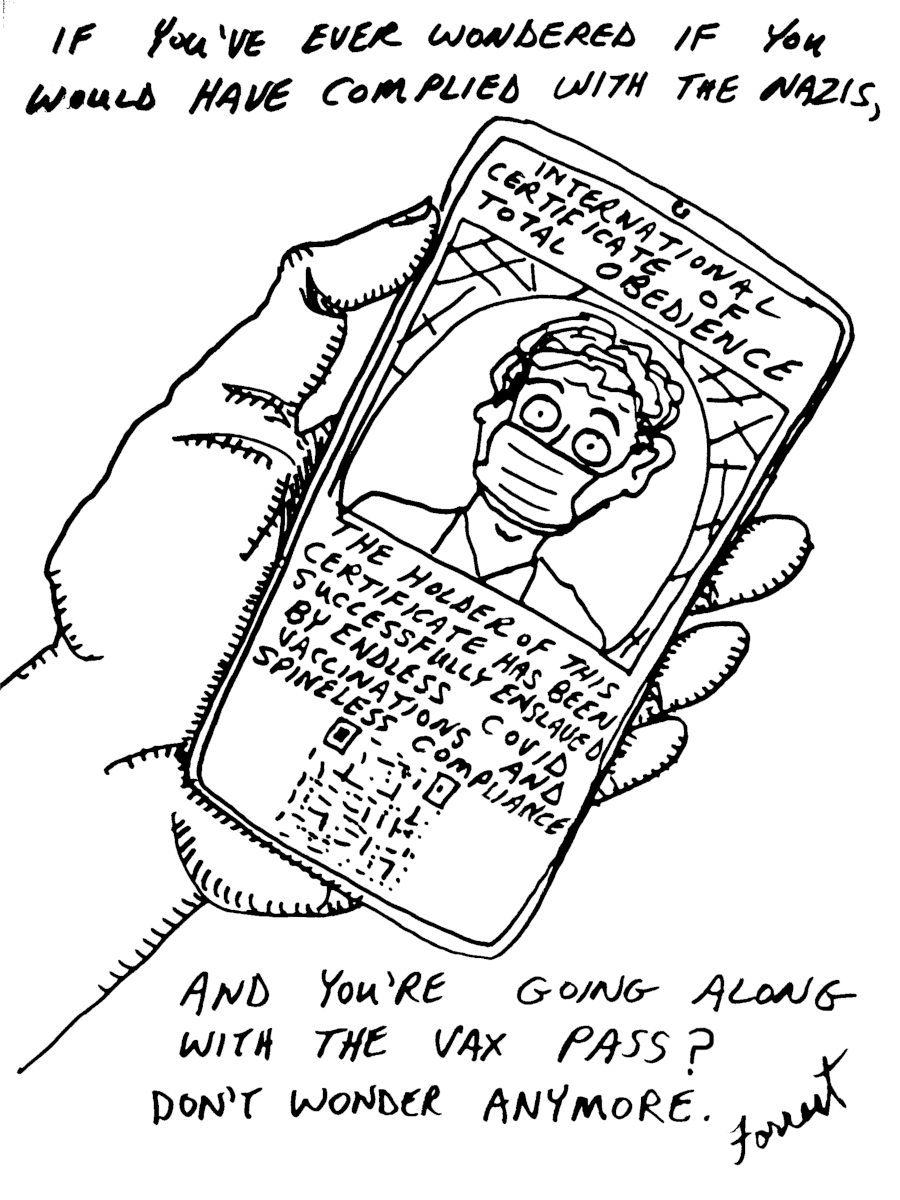 IF YOU'VE EVER WONDERED IF YOU
WOULD HAVE COMPLIED WITH THE NAZIS,
INTERNATIONAL
CERTIFICATE OF
TOTAL OBEDIENCE
THE HOLDER OF THIS
CERTIFICATE HAS BEEN
SUCCESSFULLY ENSLAVED
BY ENDLESS COVID
VACCINATIONS AND
SPINELESS COMPLIANCE
AND YOU'RE GOING ALONG
WITH THE VAX PASS?
DON'T WONDER ANYMORE.
Forrest